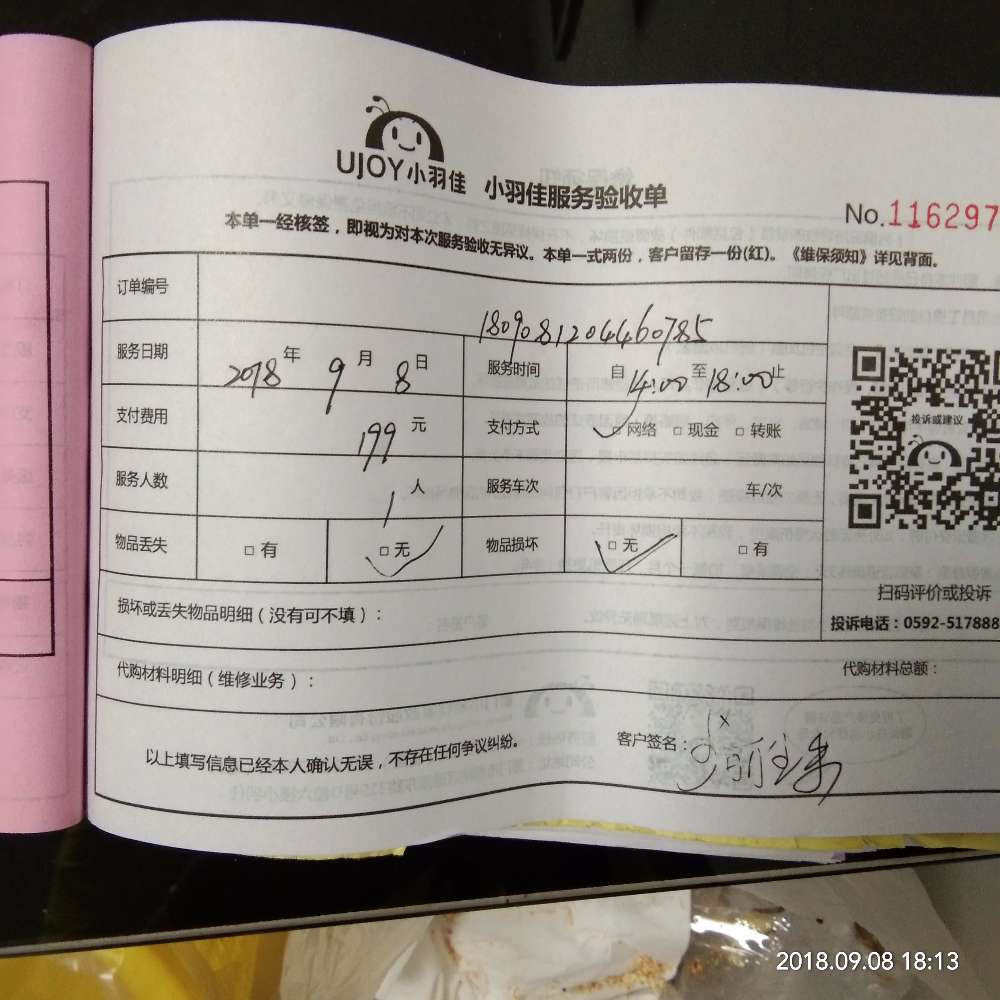 UJOY小羽佳 小羽佳服务验收单
No.116297
本单一经核签，即视为对本次服务验收无异议。本单一式两份，客户留存一份(红)。《维保须知》详见背面。
订单编号 1809081204460785
服务日期 2018年9月8日 服务时间 自14:00至18:00止
支付费用 199元 支付方式 ✓□网络 □现金 □转账
服务人数 1人 服务车次 车/次
物品丢失 □有 □无✓ 物品损坏 □无✓ □有
投诉或建议
扫码评价或投诉
投诉电话：0592-517888
损坏或丢失物品明细（没有可不填）：
代购材料明细（维修业务）： 代购材料总额：
以上填写信息已经本人确认无误，不存在任何争议纠纷。 客户签名：
2018.09.08 18:13